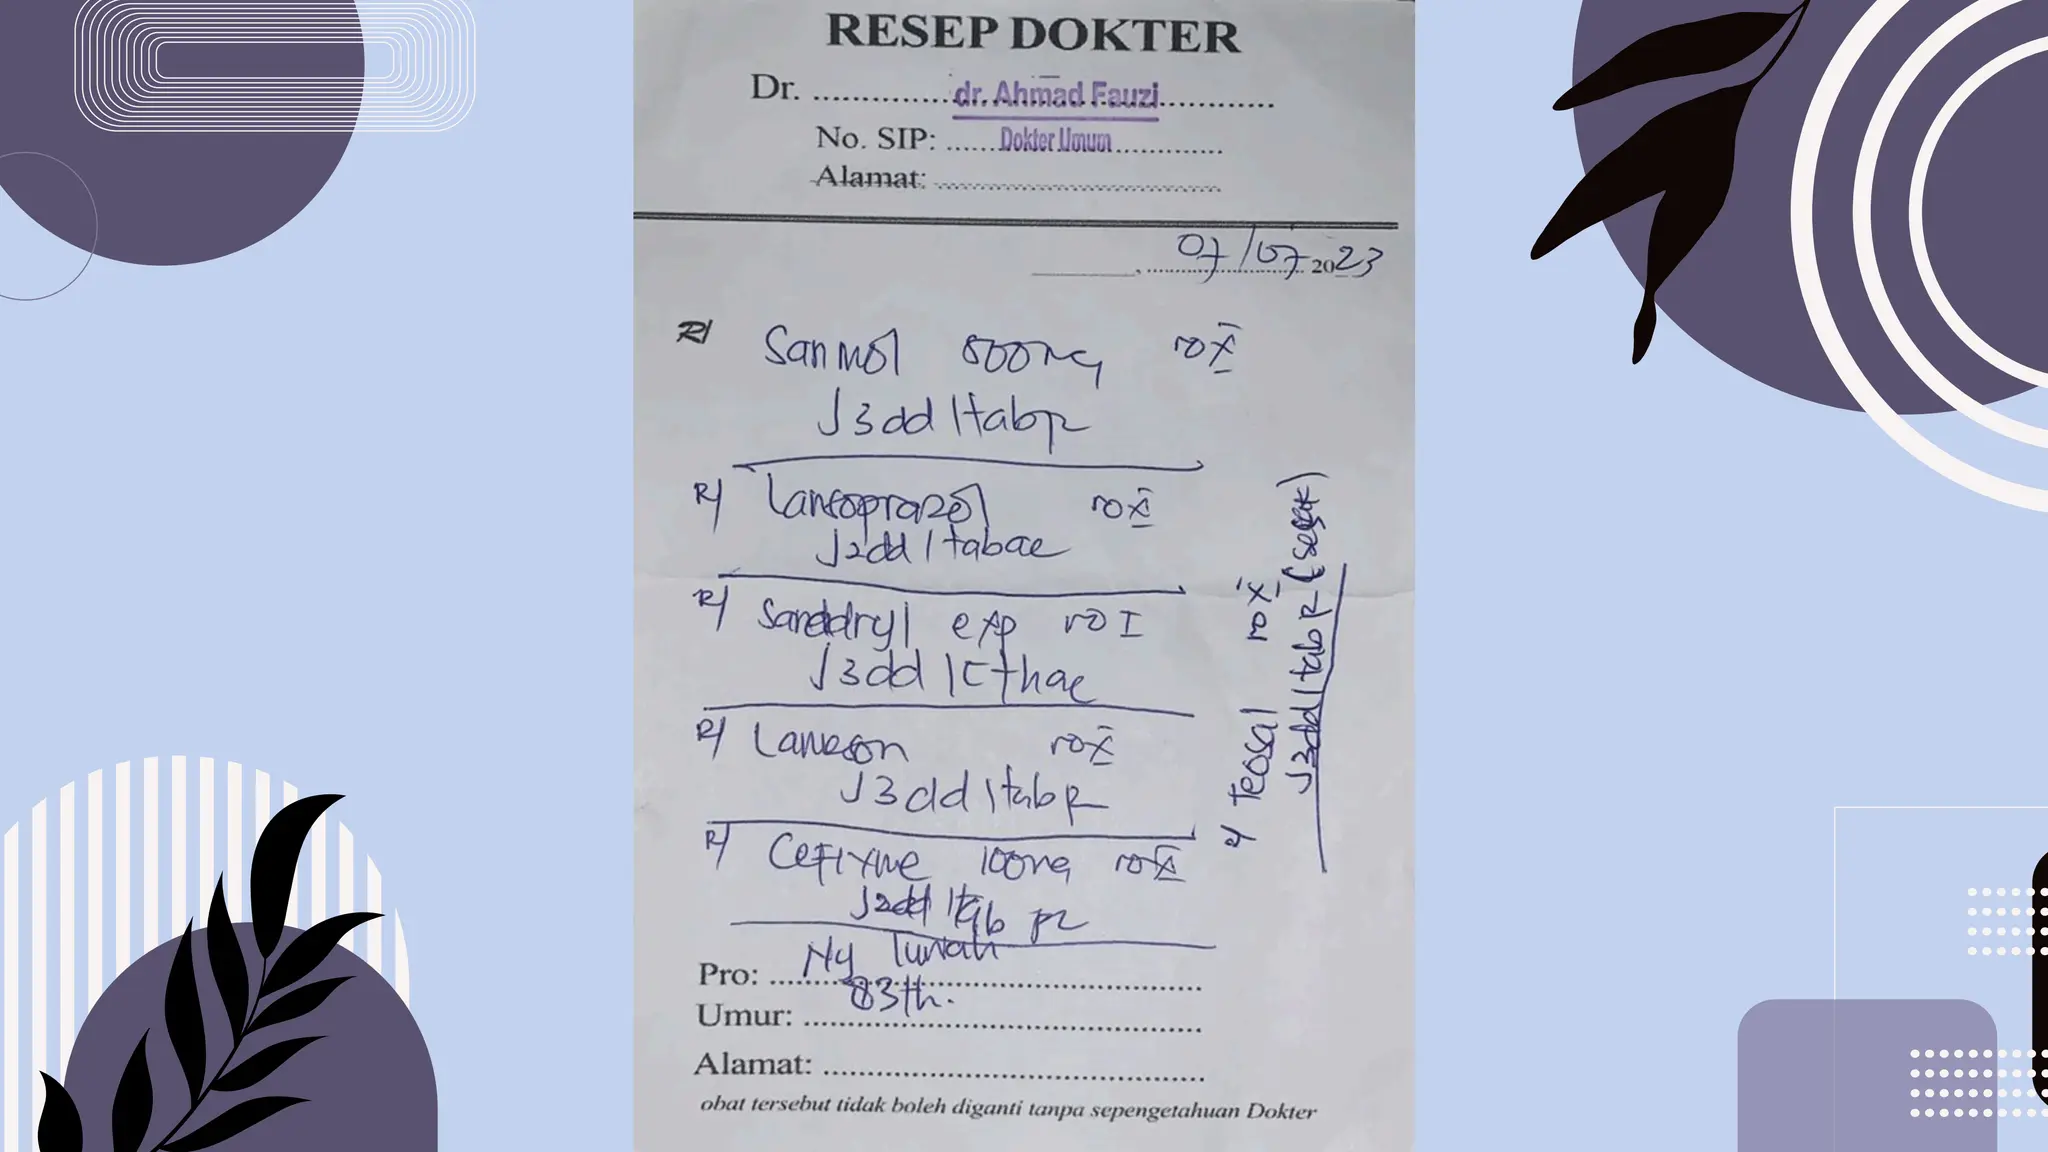 RESEP DOKTER
Dr. dr. Ahmad Fauzi
No. SIP: Dokter Umum
Alamat:
07/07 2023
R/ Sanmol 500mg no X
ʃ 3dd 1 tab pc
R/ Lansoprazol no X
ʃ 2dd 1 tab ac
R/ Sanadryl exp no I
ʃ 3dd 1 C th ac
R/ Lameson no X
ʃ 3dd 1 tab pc
R/ Cefixme 100mg no X
ʃ 2dd 1 tab pc
R/ Teosal no X
ʃ 3dd 1 tab pc (sesak)
Pro: Ny
Umur: 83 th.
Alamat:
obat tersebut tidak boleh diganti tanpa sepengetahuan Dokter